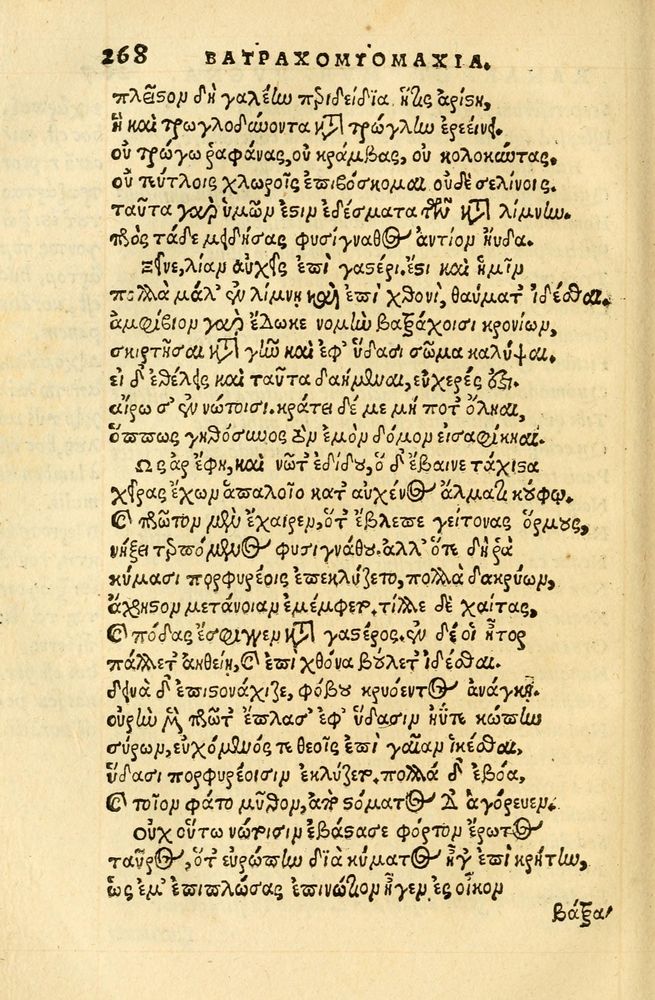 268 ΒΑΤΡΑΧΟΜΥΟΜΑΧΙΑ.
πλεῖστον δὴ γαλέην περιδείδια ἥτις ἀρίστη,
ἣ καὶ τρωγλοδύνοντα κατὰ τρώγλην ἐρεείνει.
οὐ τρώγω ῥαφάνας, οὐ κράμβας, οὐ κολοκύντας.
οὐ πεύτλοις χλωροῖς ἐπιβόσκομαι οὐδὲ σελίνοις.
ταῦτα γὰρ ὑμῶν ἐστιν ἐδέσματα τῶν κατὰ λίμνην.
πρὸς τάδε μειδήσας φυσίγναθος ἀντίον ηὔδα.
Ξεῖνε, λίαν αὐχεῖς ἐπὶ γαστέρι. ἔστι καὶ ἡμῖν
πολλὰ μάλ' ἐν λίμνῃ καὶ ἐπὶ χθονὶ, θαύματ' ἰδέσθαι.
ἀμφίβιον γὰρ ἔδωκε νομὴν βατράχοισι κρονίων,
σκιρτῆσαι κατὰ γῆν καὶ ἐφ' ὕδασι σῶμα καλύψαι.
εἰ δ' ἐθέλεις καὶ ταῦτα δαήμεναι, εὐχερές ἐστι.
αἴρω σ' ἐν νώτοισι. κράτει δέ με μή ποτ' ὄληαι,
ὅππως γηθόσυνος τὸν ἐμὸν δόμον εἰσαφίκηαι.
Ὣς ἄρ' ἔφη, καὶ νῶτ' ἐδίδου, ὁ δ' ἔβαινε τάχιστα
χεῖρας ἔχων ἁπαλοῖο κατ' αὐχένος ἅλματι κούφῳ.
καὶ πρῶτον μὲν ἔχαιρεν, ὅτ' ἔβλεπε γείτονας ὅρμους,
νήξει τερπόμενος φυσιγνάθου. ἀλλ' ὅτε δή ῥα
κύμασι πορφυρέοις ἐπεκλύζετο, πολλὰ δακρύων,
ἄχρηστον μετάνοιαν ἐμέμφετο. τίλλε δὲ χαίτας,
καὶ πόδας ἔσφιγγεν κατὰ γαστέρος. ἐν δέ οἱ ἦτορ
πάλλετ' ἀηθείῃ, καὶ ἐπὶ χθόνα βούλετ' ἰδέσθαι.
δεινὰ δ' ἐπεστονάχιζε, φόβου κρυόεντος ἀνάγκῃ.
οὐρὴν μὲν πρῶτ' ἔπλασ' ἐφ' ὕδασιν ἠΰτε κώπην
σύρων, εὐχόμενός τε θεοῖς ἐπὶ γαῖαν ἱκέσθαι,
ὕδασι πορφυρέοισιν ἐκλύζετο. πολλὰ δ' ἐβόα,
καὶ τοῖον φάτο μῦθον, ἀπὸ στόματος δ' ἀγόρευεν.
Οὐχ οὕτω νώτοισιν ἐβάστασε φόρτον ἔρωτος
ταῦρος, ὅτ' εὐρώπην διὰ κύματος ἦγ' ἐπὶ κρήτην,
ὡς ἔμ' ἐπιπλώσας ἐπινώτιον ἦγεν ἐς οἶκον
βάτρα